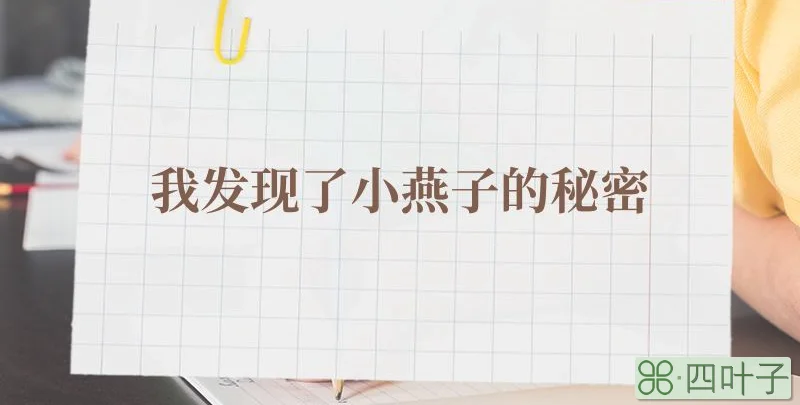 我发现了小燕子的秘密
四叶子